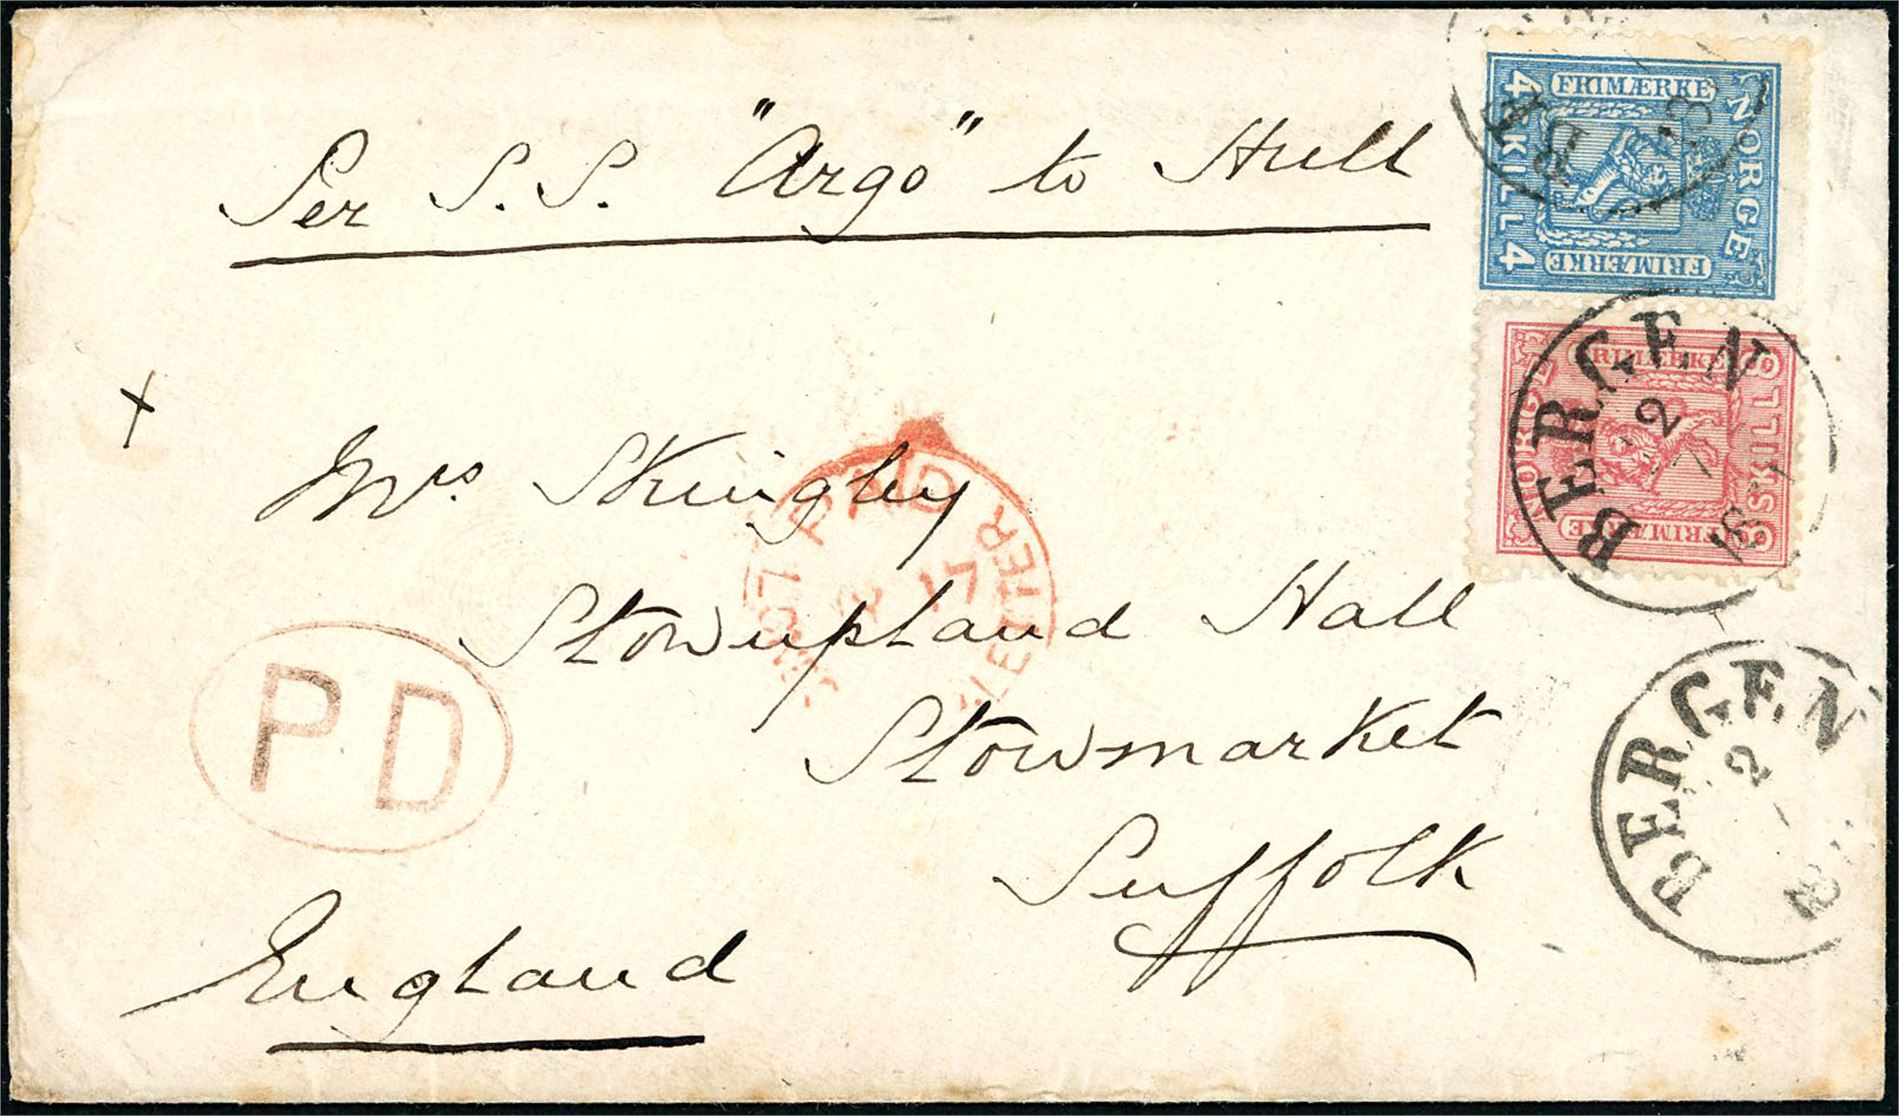 Per S.S. "Argo" to Hull
FRIMÆRKE
NORGE
4 SKILL 4
FRIMÆRKE
FRIMÆRKE
NORGE
8 SKILL 8
FRIMÆRKE
BERGEN
2
7
187
Mrs Skingley
Stowupland Hall
Stowmarket
Suffolk
England
PAID
PD
BERGEN
2